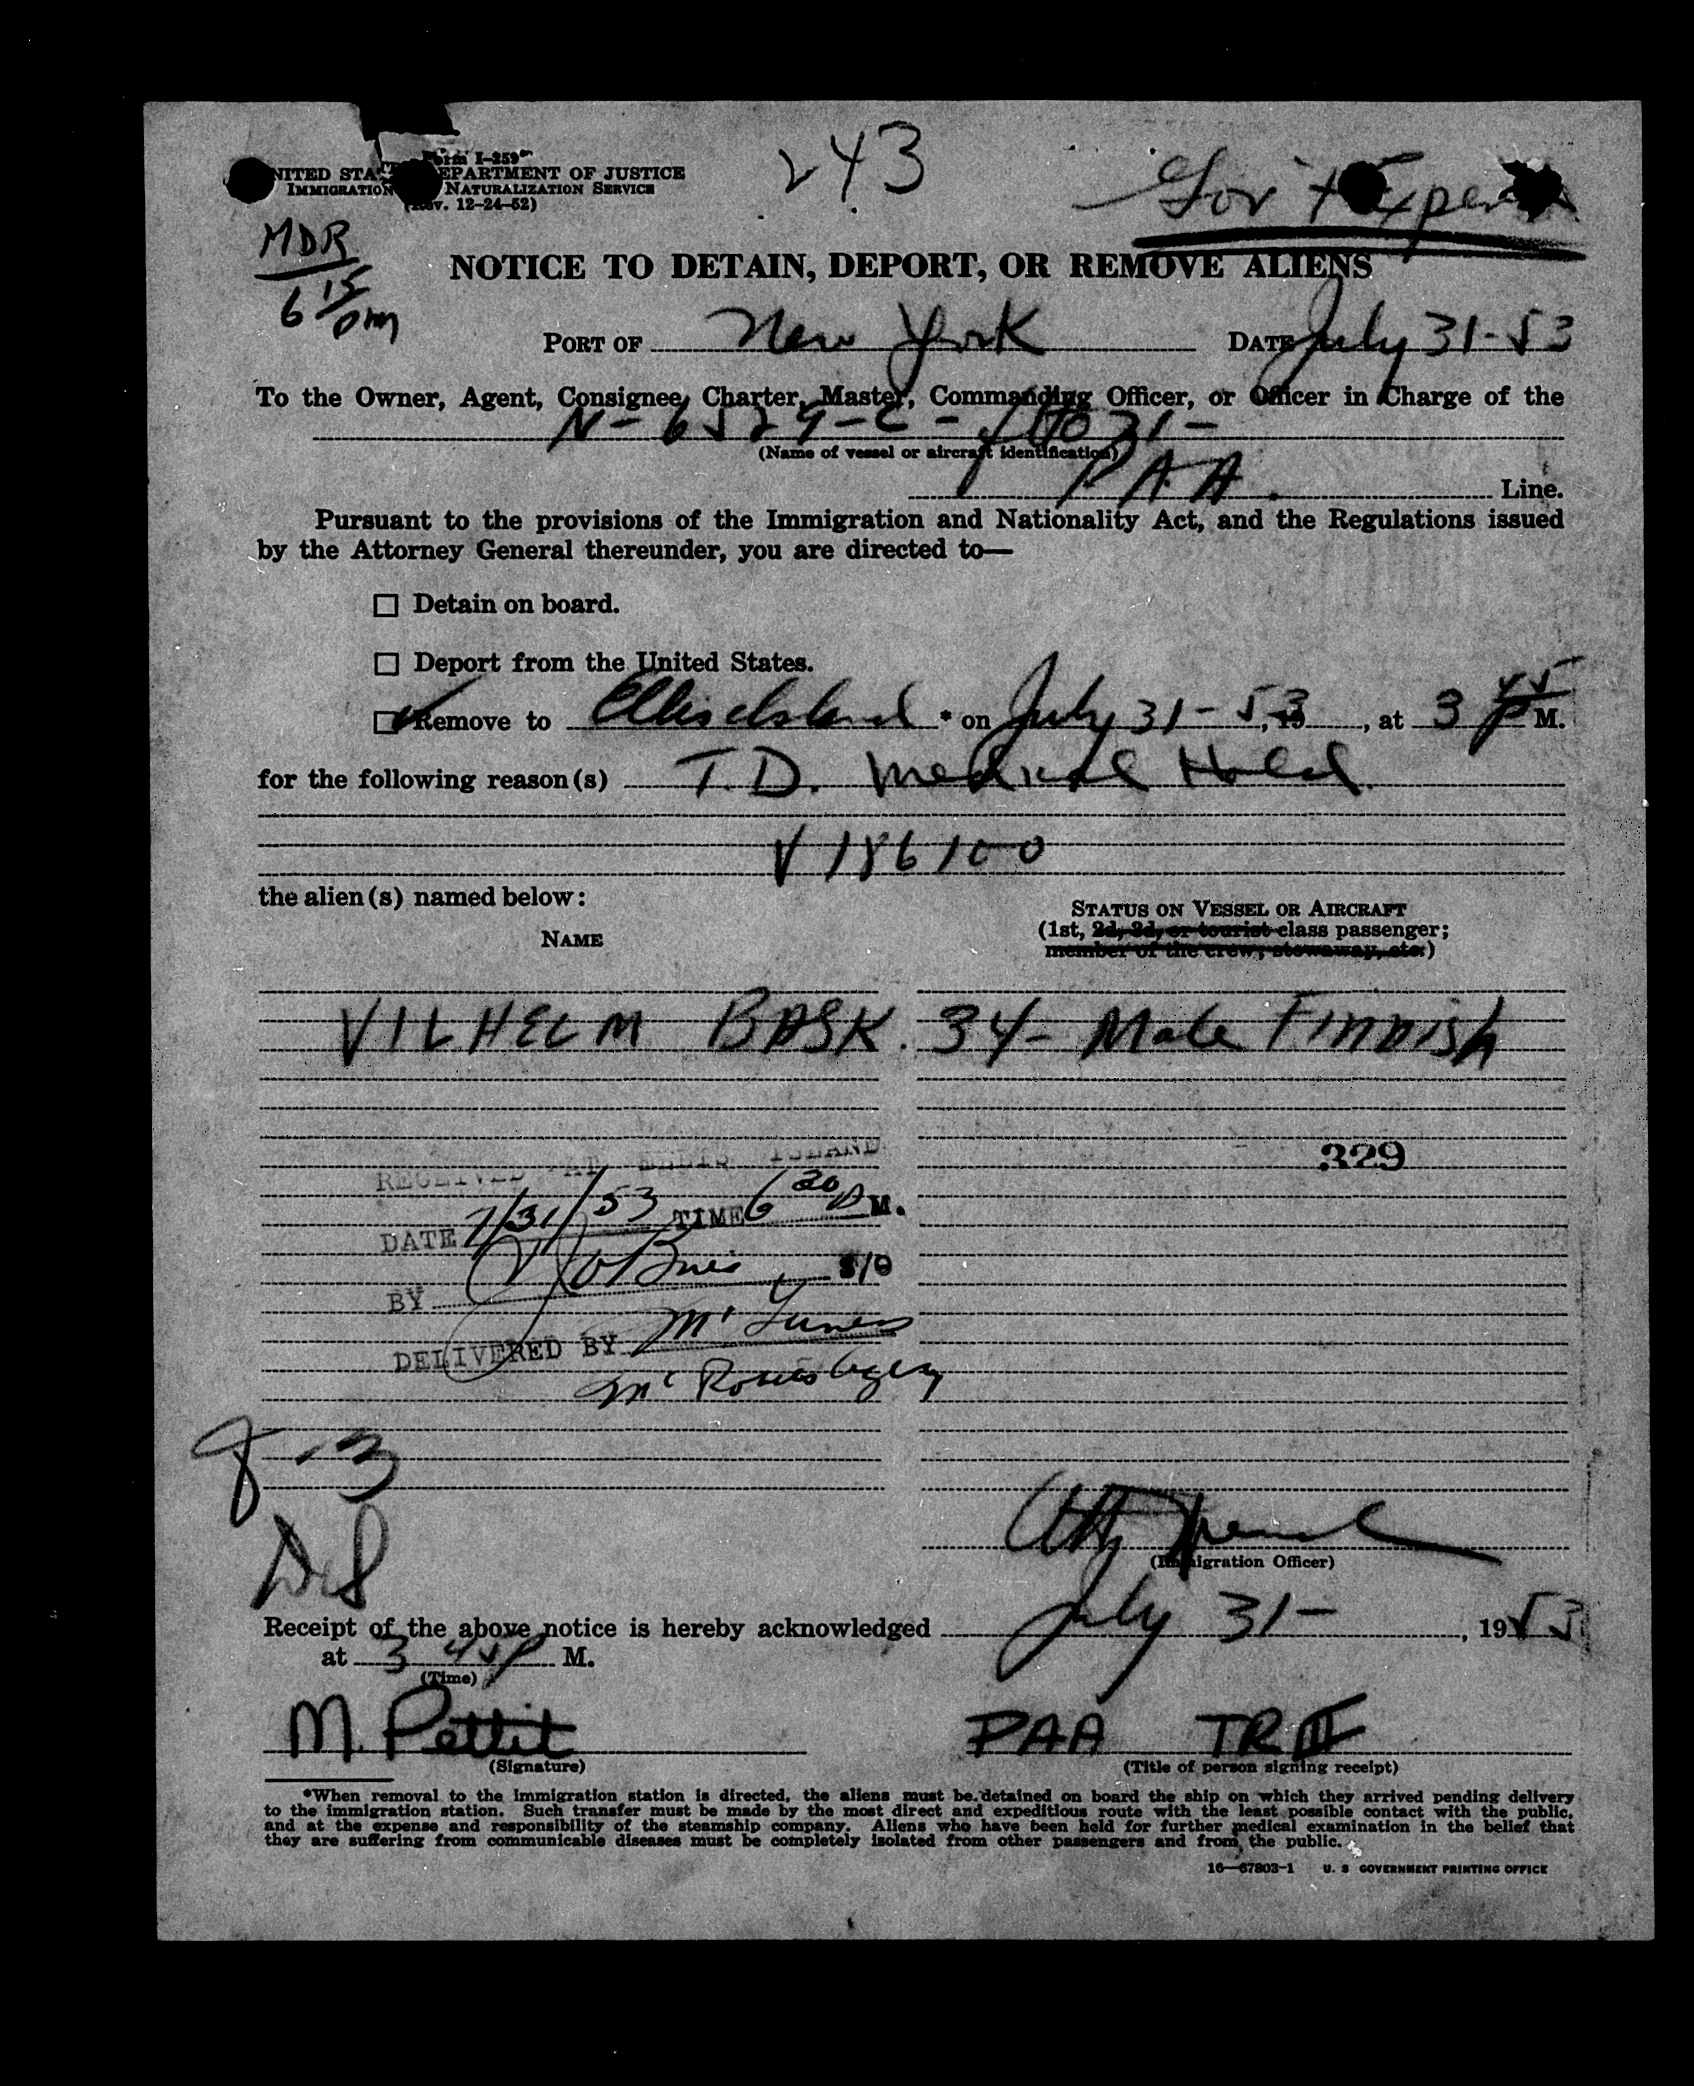 243
Form I-259
UNITED STATES DEPARTMENT OF JUSTICE
IMMIGRATION NATURALIZATION SERVICE
(Rev. 12-24-52)
Gov't Expense
MDR
6 15 pm
NOTICE TO DETAIN, DEPORT, OR REMOVE ALIENS
PORT OF New York DATE July 31-53
To the Owner, Agent, Consignee, Charter, Master, Commanding Officer, or Officer in Charge of the
N-6529-C-
(Name of vessel or aircraft identification)
P.A.A. Line.
Pursuant to the provisions of the Immigration and Nationality Act, and the Regulations issued
by the Attorney General thereunder, you are directed to—
☐ Detain on board.
☐ Deport from the United States.
☑ Remove to Ellis Island * on July 31-53, 19, at 3 45 P M.
for the following reason(s) T.D. Medical Hold.
V186100
the alien(s) named below:
STATUS ON VESSEL OR AIRCRAFT
NAME
(1st, 2d, 3d, or tourist class passenger;
member of the crew, stowaway, etc.)
VILHELM BASK. 34- Male FINNISH
329
RECEIVED AT ELLIS ISLAND
DATE 7/31/53 TIME 6 20 P M.
BY S/O
DELIVERED BY
8-3
Def
(Immigration Officer)
Receipt of the above notice is hereby acknowledged July 31-, 1953
at 3 45 P M.
(Time)
M. Pettit PAA TR III
(Signature) (Title of person signing receipt)
*When removal to the immigration station is directed, the aliens must be detained on board the ship on which they arrived pending delivery
to the immigration station. Such transfer must be made by the most direct and expeditious route with the least possible contact with the public,
and at the expense and responsibility of the steamship company. Aliens who have been held for further medical examination in the belief that
they are suffering from communicable diseases must be completely isolated from other passengers and from the public.
16—67803-1 U. S. GOVERNMENT PRINTING OFFICE